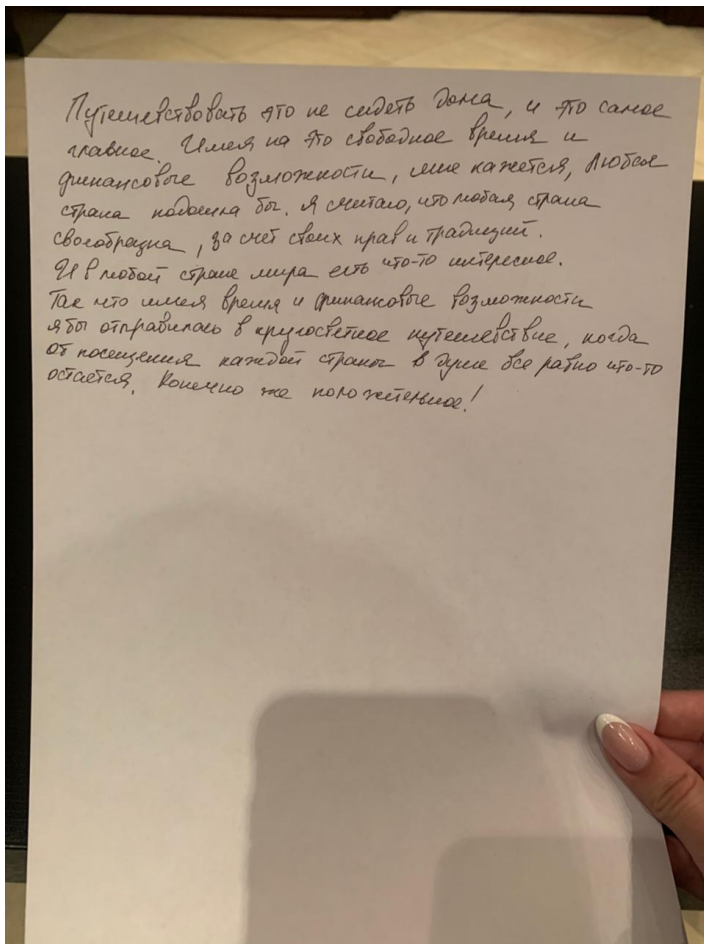 Путешествовать это не сидеть дома, и это самое
главное. Имея на это свободное время и
финансовые возможности, мне кажется, любая
страна подошла бы. Я считаю, что любая страна
своеобразна, за счет своих прав и традиций.
И в любой стране мира есть что-то интересное.
Так что имея время и финансовые возможности
я бы отправилась в кругосветное путешествие, когда
от посещения каждой страны в душе все равно что-то
остается. Конечно же положительное!